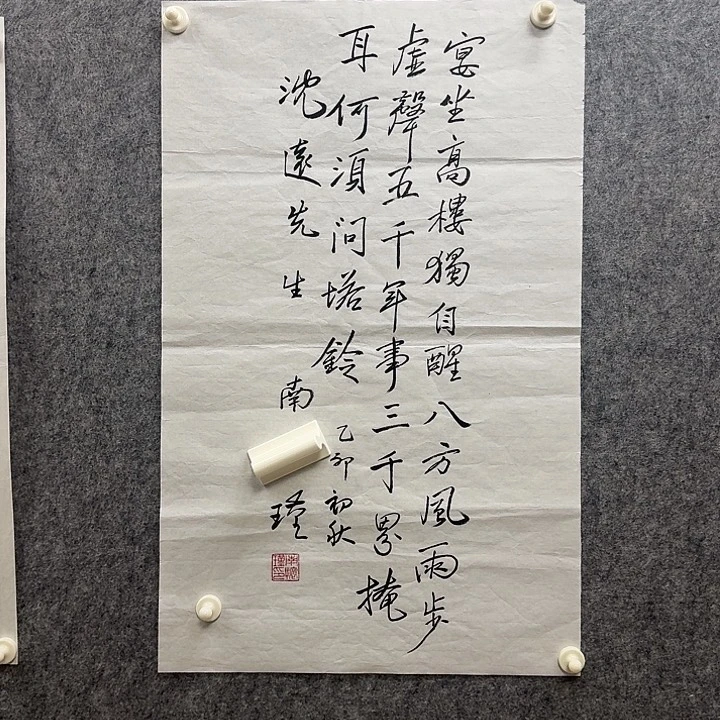 宴坐高樓獨自醒八方風雨步
虛聲五千年事三千界掩
耳何湏問塔鈴
乙卯初秋
沈遠先生
南
瑾